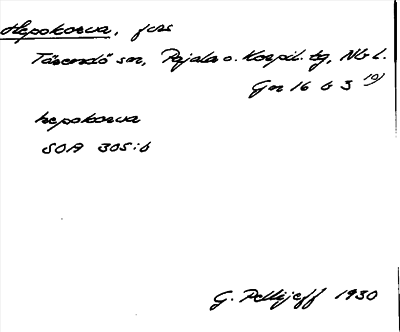 Hepokorva, fors
Tärendö sn, Pajala o. Korpil. tg, Nb l.
Ge 16 b 3 10)
hepokorva
SOA 305:b
G. Pellijeff 1930